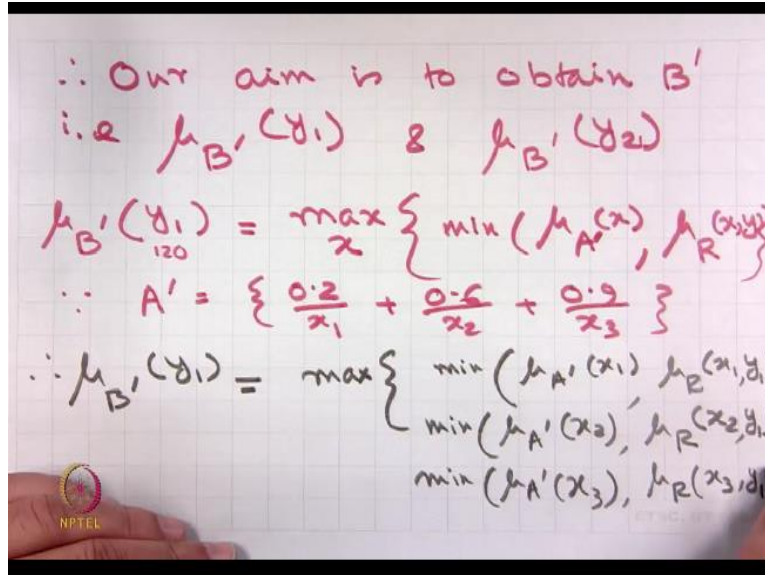 ∴ Our aim is to obtain B'
i.e μ_B'(y₁) & μ_B'(y₂)
μ_B'(y₁) = max_x { min(μ_A'(x), μ_R(x,y)
120
∵ A' = { 0.2/x₁ + 0.6/x₂ + 0.9/x₃ }
∴ μ_B'(y₁) = max { min(μ_A'(x₁), μ_R(x₁,y₁
min(μ_A'(x₂), μ_R(x₂,y₁
min(μ_A'(x₃), μ_R(x₃,y₁
NPTEL